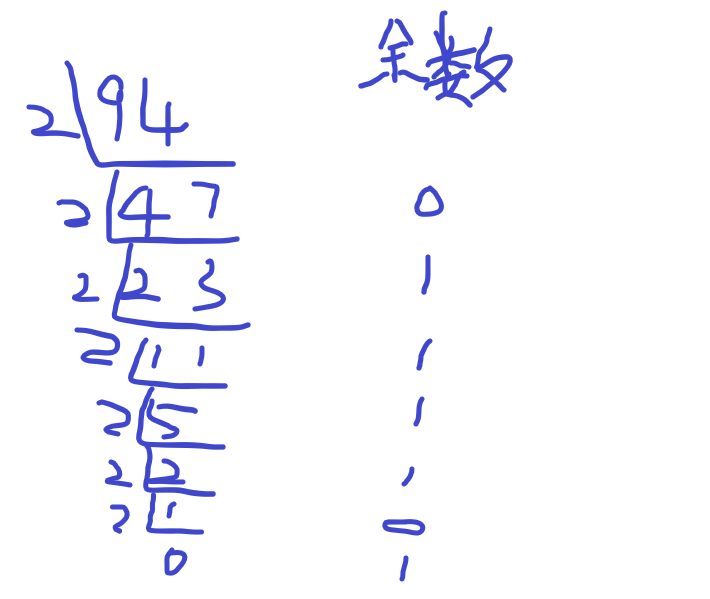 余数
2 94
2 47 0
2 23 1
2 11 1
2 5 1
2 2 1
2 1 0
0 1